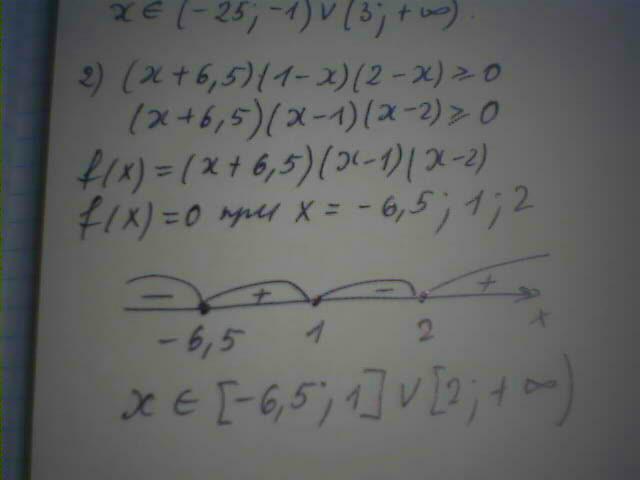 x ∈ (-25; -1) ∨ (3; +∞).
2) (x+6,5)(1-x)(2-x) ≥ 0
(x+6,5)(x-1)(x-2) ≥ 0
f(x) = (x+6,5)(x-1)(x-2)
f(x) = 0 при x = -6,5; 1; 2
- + - +
-6,5 1 2 x
x ∈ [-6,5; 1] ∨ [2; +∞)